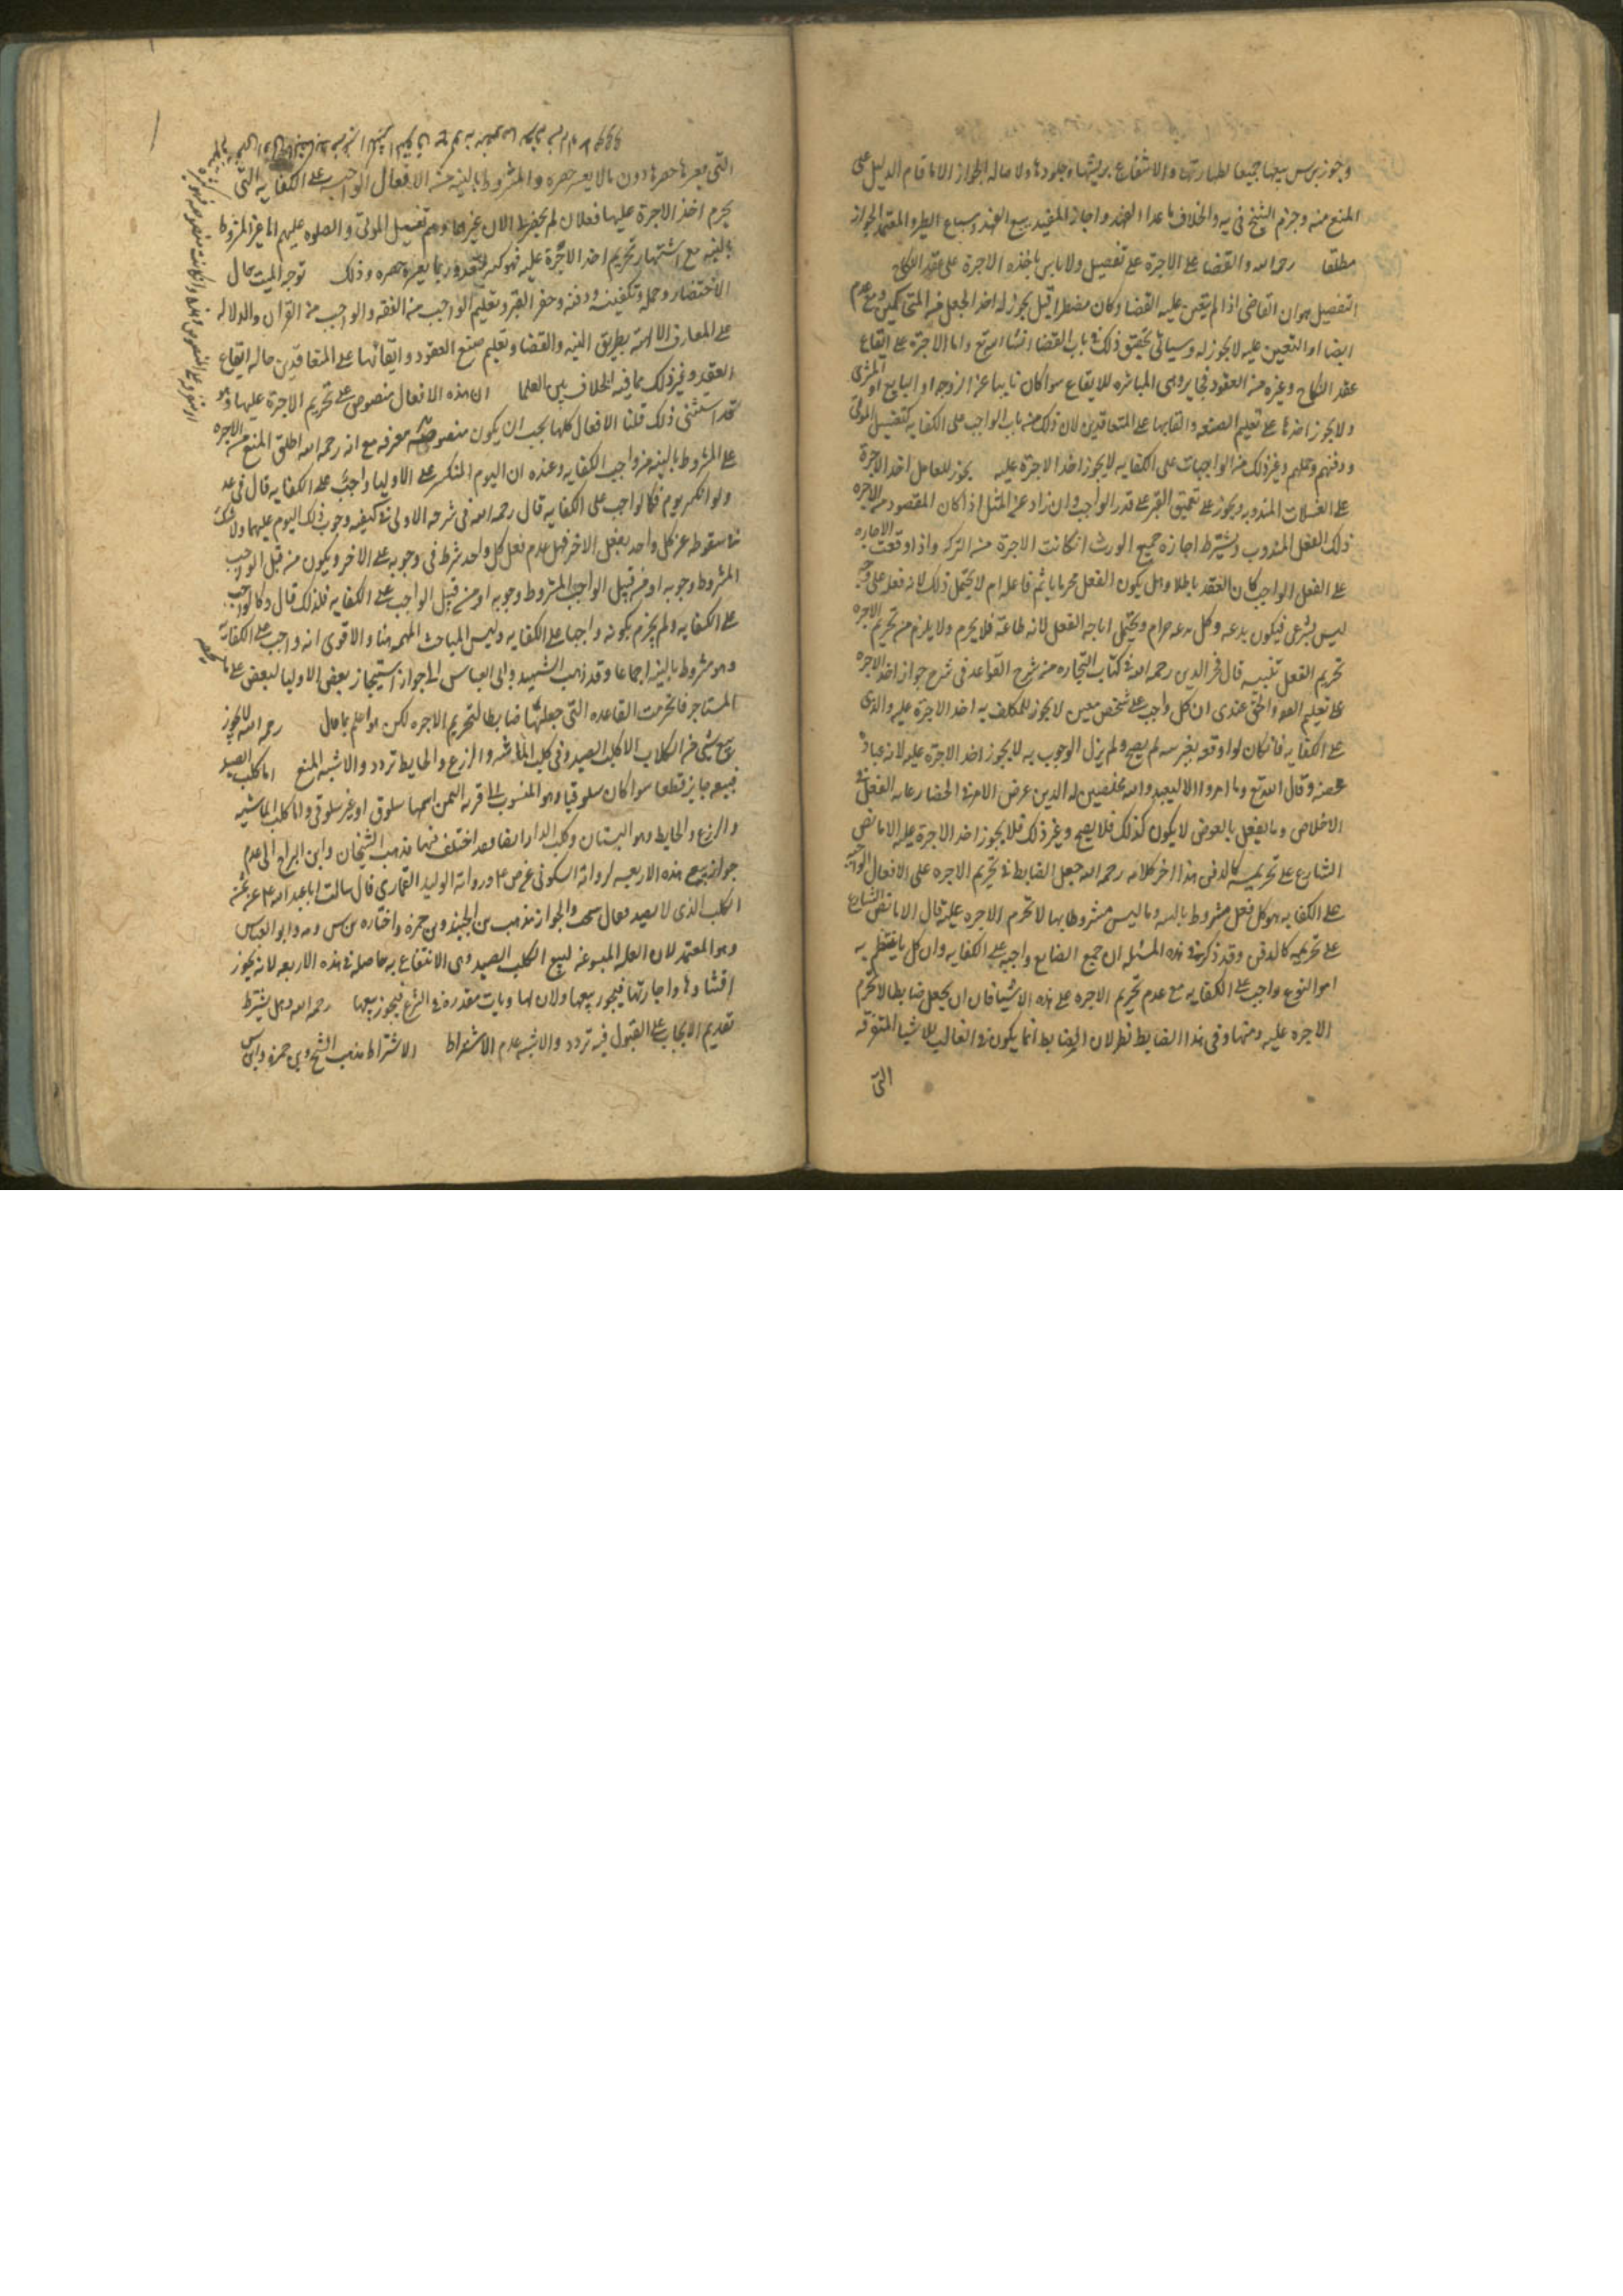 وجوز بن س بيعها جميعا لطهارتها والانتفاع بريشها وجلودها ولاصالة الجواز الا ما قام الدليل على
المنع منه وجزم الشيخ في يه والخلاف ما عدا الفهد واجاز المفيد بيع الفهد وسباع الطير والمعتمد الجواز
مطلقا رحمه الله والقضا على الاجرة على تفصيل ولا باس باخذه الاجرة على عقد النكاح
التفصيل هو ان القاضى اذا لم يتعين عليه القضا وكان مضطرا قيل يجوز له اخذ الجعل من المتحاكمين ومع عدم
ايضا او التعيين عليه لا يجوز له وسياتى تحقيق ذلك فى باب القضا انشا الله تع واما الاجرة على ايقاع
عقد النكاح وغيره من العقود فجايز وهى المباشره للايقاع سوا كان نايبا عن الزوجه او البايع او المشترى
ولا يجوز اخذها على تعليم الصيغه والقايها على المتعاقدين لان ذلك من باب الواجب على الكفايه كتغسيل الموتى
ودفنهم وحملهم وغير ذلك من الواجبات على الكفايه لا يجوز اخذ الاجرة عليه يجوز للعامل اخذ الاجرة
على الغسلات المندوبه ويجوز على تعميق القبر على قدر الواجب وان زاد عن المثل اذا كان المقصود من الاجره
ذلك الفعل المندوب ويشترط اجازه جميع الورث انكانت الاجرة من التركه واذا وقعت الاجاره
على الفعل الواجب كان العقد باطلا وهل يكون الفعل محرما ياثم فاعله ام لا يحتمل ذلك لانه فعله على وجه
ليس بشرعى فيكون بدعه وكل بدعه حرام ويحتمل اباحه الفعل لانه طاعة فلا يحرم ولا يلزم من تحريم الاجره
تحريم الفعل تنبيه قال فخر الدين رحمه الله فى كتاب التجاره من شرح القواعد فى شرح جواز اخذ الاجره
على تعليم والحق عندى ان كل واجب على شخص معين لا يجوز للمكلف به اخذ الاجرة عليه والذى
على الكفايه فان كان لو اوقعه بغير نيه لم يصح ولم يزل الوجوب به لا يجوز اخذ الاجرة عليه لانه عبادة
محضه وقال الله تع وما امروا الا ليعبدوا الله مخلصين له الدين غرض الامر فى انحصار غايه الفعل فى
الاخلاص وما يفعل بالعوض لا يكون كذلك فلا يصح وغير ذلك فلا يجوز اخذ الاجرة عليه الا ما نص
الشارع على تحريمه كالدفن هذا اخر كلامه رحمه الله جعل الضابط فى تحريم الاجره على الافعال الواجبه
على الكفايه هو كل فعل مشروط بالنيه وما ليس مشروطا بها لا تحرم الاجره عليه قال الا ما نص الشارع
على تحريمه كالدفن وقد ذكر فى هذه المسئله ان جميع الصنايع واجبه على الكفايه وان كل ما ينتظم به
امر النوع واجب على الكفايه مع عدم تحريم الاجره على هذه الاشيا فان ان يجعل ضابطا لا تحرم
الاجره عليه ومنها وفى هذا الضابط نظر لان الضابط انما يكون فى الغالب للاشيا المتفرقه
التى
التى يعسر حصرها دون ما لا يعسر حصره والمشروط بالنيه من الافعال الواجب على الكفايه التى
يحرم اخذ الاجرة عليها فعلان لم يحضرنا الان غيرهما وهم تغسيل الموتى والصلوه عليهم اما غير المشروط
بالنيه مع اشتهار تحريم اخذ الاجرة عليه فهو كثير التعدد وربما يعسر حصره وذلك توجه الميت حال
الاحتضار وحمله وتكفينه ودفنه وحفر القبر وتعليم الواجب من الفقه والواجب من القران والدلاله
على المعارف الالهيه بطريق التنبيه والقضا وتعليم صيغ العقود والقائها على المتعاقدين حاله ايقاع
العقد وغير ذلك مما فيه الخلاف بين العلما ان هذه الافعال منصوص على تحريم الاجرة عليها وهو
قد استثنى ذلك قلنا الافعال كلها يجب ان يكون منصوصه معرفه مع انه رحمه الله اطلق المنع من الاجره
على المشروط بالنيه من واجب الكفايه وعنده ان اليوم المنكسر على الاوليا واجب على الكفايه قال فى عد
ولو انكسر يوم فكالواجب على الكفايه قال رحمه الله فى شرحه الاولى فى كيفيه وجوب ذلك اليوم عليهما ولا شك
فى سقوطه عن كل واحد بفعل الاخر فهل عدم فعل كل واحد شرط فى وجوبه على الاخر ويكون من قبيل الواجب
المشروط وجوبه او من قبيل الواجب المشروط وجوبه او من قبيل الواجب على الكفايه فلذلك قال وكالواجب
على الكفايه ولم يجزم بكونه واجبا على الكفايه وليس المباحث المهمه هنا والاقوى انه واجب على الكفايه
وهو مشروط بالنيه اجماعا وقد ذهب الشهيد وابى العباس الى جواز استيجار بعض الاوليا لبعض على ما يخصه
المستاجر فانخرمت القاعده التى جعلتها ضابطا لتحريم الاجره لكن هو اعلم بما قال رحمه الله لا يجوز
بيع شى من الكلاب الا كلب الصيد وفى كلب الماشيه والزرع والحايط تردد والاشبه المنع اما كلب الصيد
فبيعه جايز قطعا سوا كان سلوقيا وهو المنسوب الى قريه باليمن اسمها سلوق او غير سلوقى واما كلب الماشيه
والزرع والحايط وهو البستان وكلب الدار ايضا فقد اختلف فيها فذهب الشيخان وابن البراج الى عدم
جواز بيع هذه الاربعه لروايه السكونى عن ص ع وروايه الوليد العمارى قال سالت ابا عبد الله ع عن ثمن
الكلب الذى لا يصيد فقال سحت والجواز مذهب بن الجنيد وبن حمزه واختاره بن س ومه وابو العباس
وهو المعتمد لان العله المسوغه لبيع الكلب الصيد وهى الانتفاع به حاصله فى هذه الاربعه لانه يجوز
اقتناوها واجارتها فيجوز بيعها ولان لها ديات مقدره فى الشرع فيجوز بيعها رحمه الله وهل يشترط
تقديم الايجاب على القبول فيه تردد والاشبه عدم الاشتراط الاشتراط مذهب الشيخ وبن حمزه وابن س